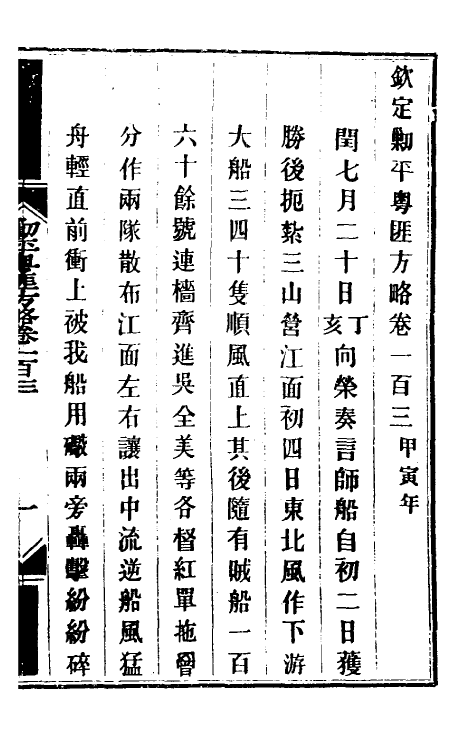 欽定剿平粵匪方略卷一百三甲寅年
閏七月二十日丁亥向榮奏言師船自初二日獲
勝後扼紮三山營江面初四日東北風作下游
大船三四十隻順風直上其後隨有賊船一百
六十餘號連檣齊進吳全美等各督紅單拖罟
分作兩隊散布江面左右讓出中流逆船風猛
舟輕直前衝上被我船用礮兩旁轟擊紛紛碎
剿平粵匪方略卷一百三
一